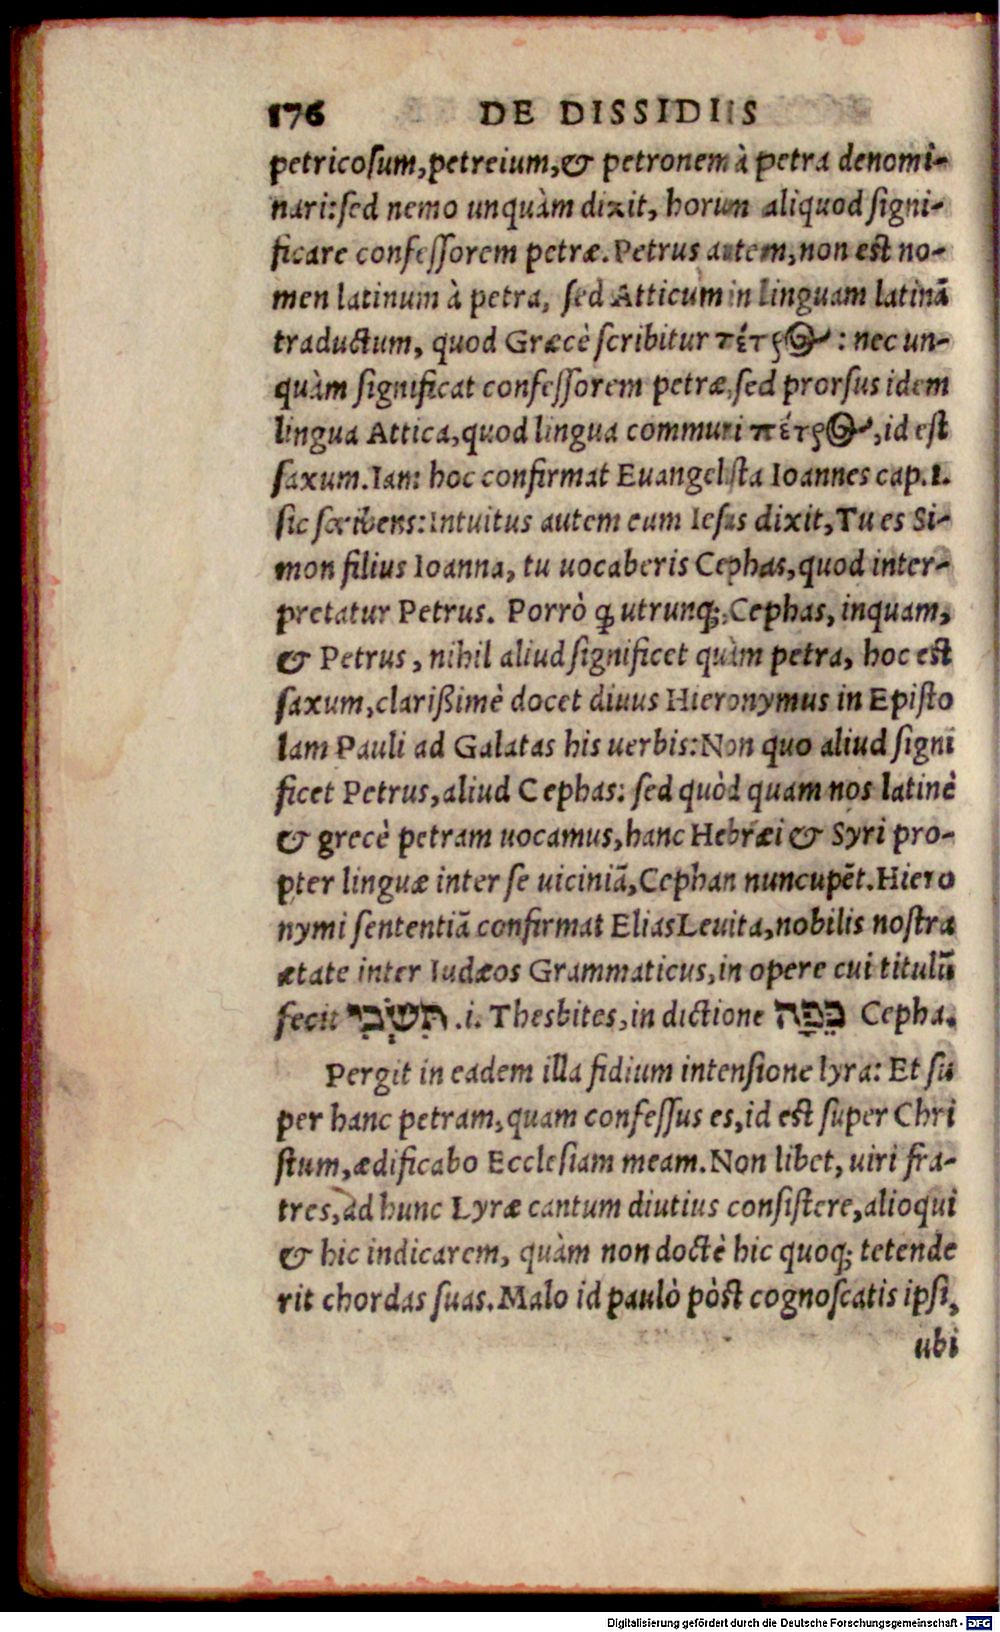 176 DE DISSIDIIS
petricoſum, petreium, & petronem à petra denomi-
nari: ſed nemo unquàm dixit, horum aliquod ſigni-
ficare confeſſorem petræ. Petrus autem, non eſt no-
men latinum à petra, ſed Atticum in linguam latinā
traductum, quod Græcè ſcribitur πέτρος: nec un-
quàm ſignificat confeſſorem petræ, ſed prorſus idem
lingua Attica, quod lingua communi πέτρος, id eſt
ſaxum. Iam hoc confirmat Euangeliſta Ioannes cap. 1.
ſic ſcribens: Intuitus autem eum Ieſus dixit, Tu es Si-
mon filius Ioanna, tu uocaberis Cephas, quod inter-
pretatur Petrus. Porrò ꝙ utrunq;, Cephas, inquam,
& Petrus, nihil aliud ſignificet quàm petra, hoc eſt
ſaxum, clarißimè docet diuus Hieronymus in Epiſto
lam Pauli ad Galatas his uerbis: Non quo aliud ſigni
ficet Petrus, aliud Cephas: ſed quòd quam nos latinè
& grecè petram uocamus, hanc Hebræi & Syri pro-
pter linguæ inter ſe uiciniā, Cephan nuncupēt. Hiero
nymi ſententiā confirmat Elias Leuita, nobilis noſtra
ætate inter Iudæos Grammaticus, in opere cui titulū
fecit תִּשְׁבִּי .i. Thesbites, in dictione כֵּפָה Cepha.
Pergit in eadem illa fidium intenſione lyra: Et ſu
per hanc petram, quam confeſſus es, id eſt ſuper Chri
ſtum, ædificabo Eccleſiam meam. Non libet, uiri fra-
tres, ad hunc Lyræ cantum diutius conſiſtere, alioqui
& hic indicarem, quàm non doctè hic quoq; tetende
rit chordas ſuas. Malo id paulò pòſt cognoſcatis ipſi,
ubi
Digitalisierung gefördert durch die Deutsche Forschungsgemeinschaft - DFG